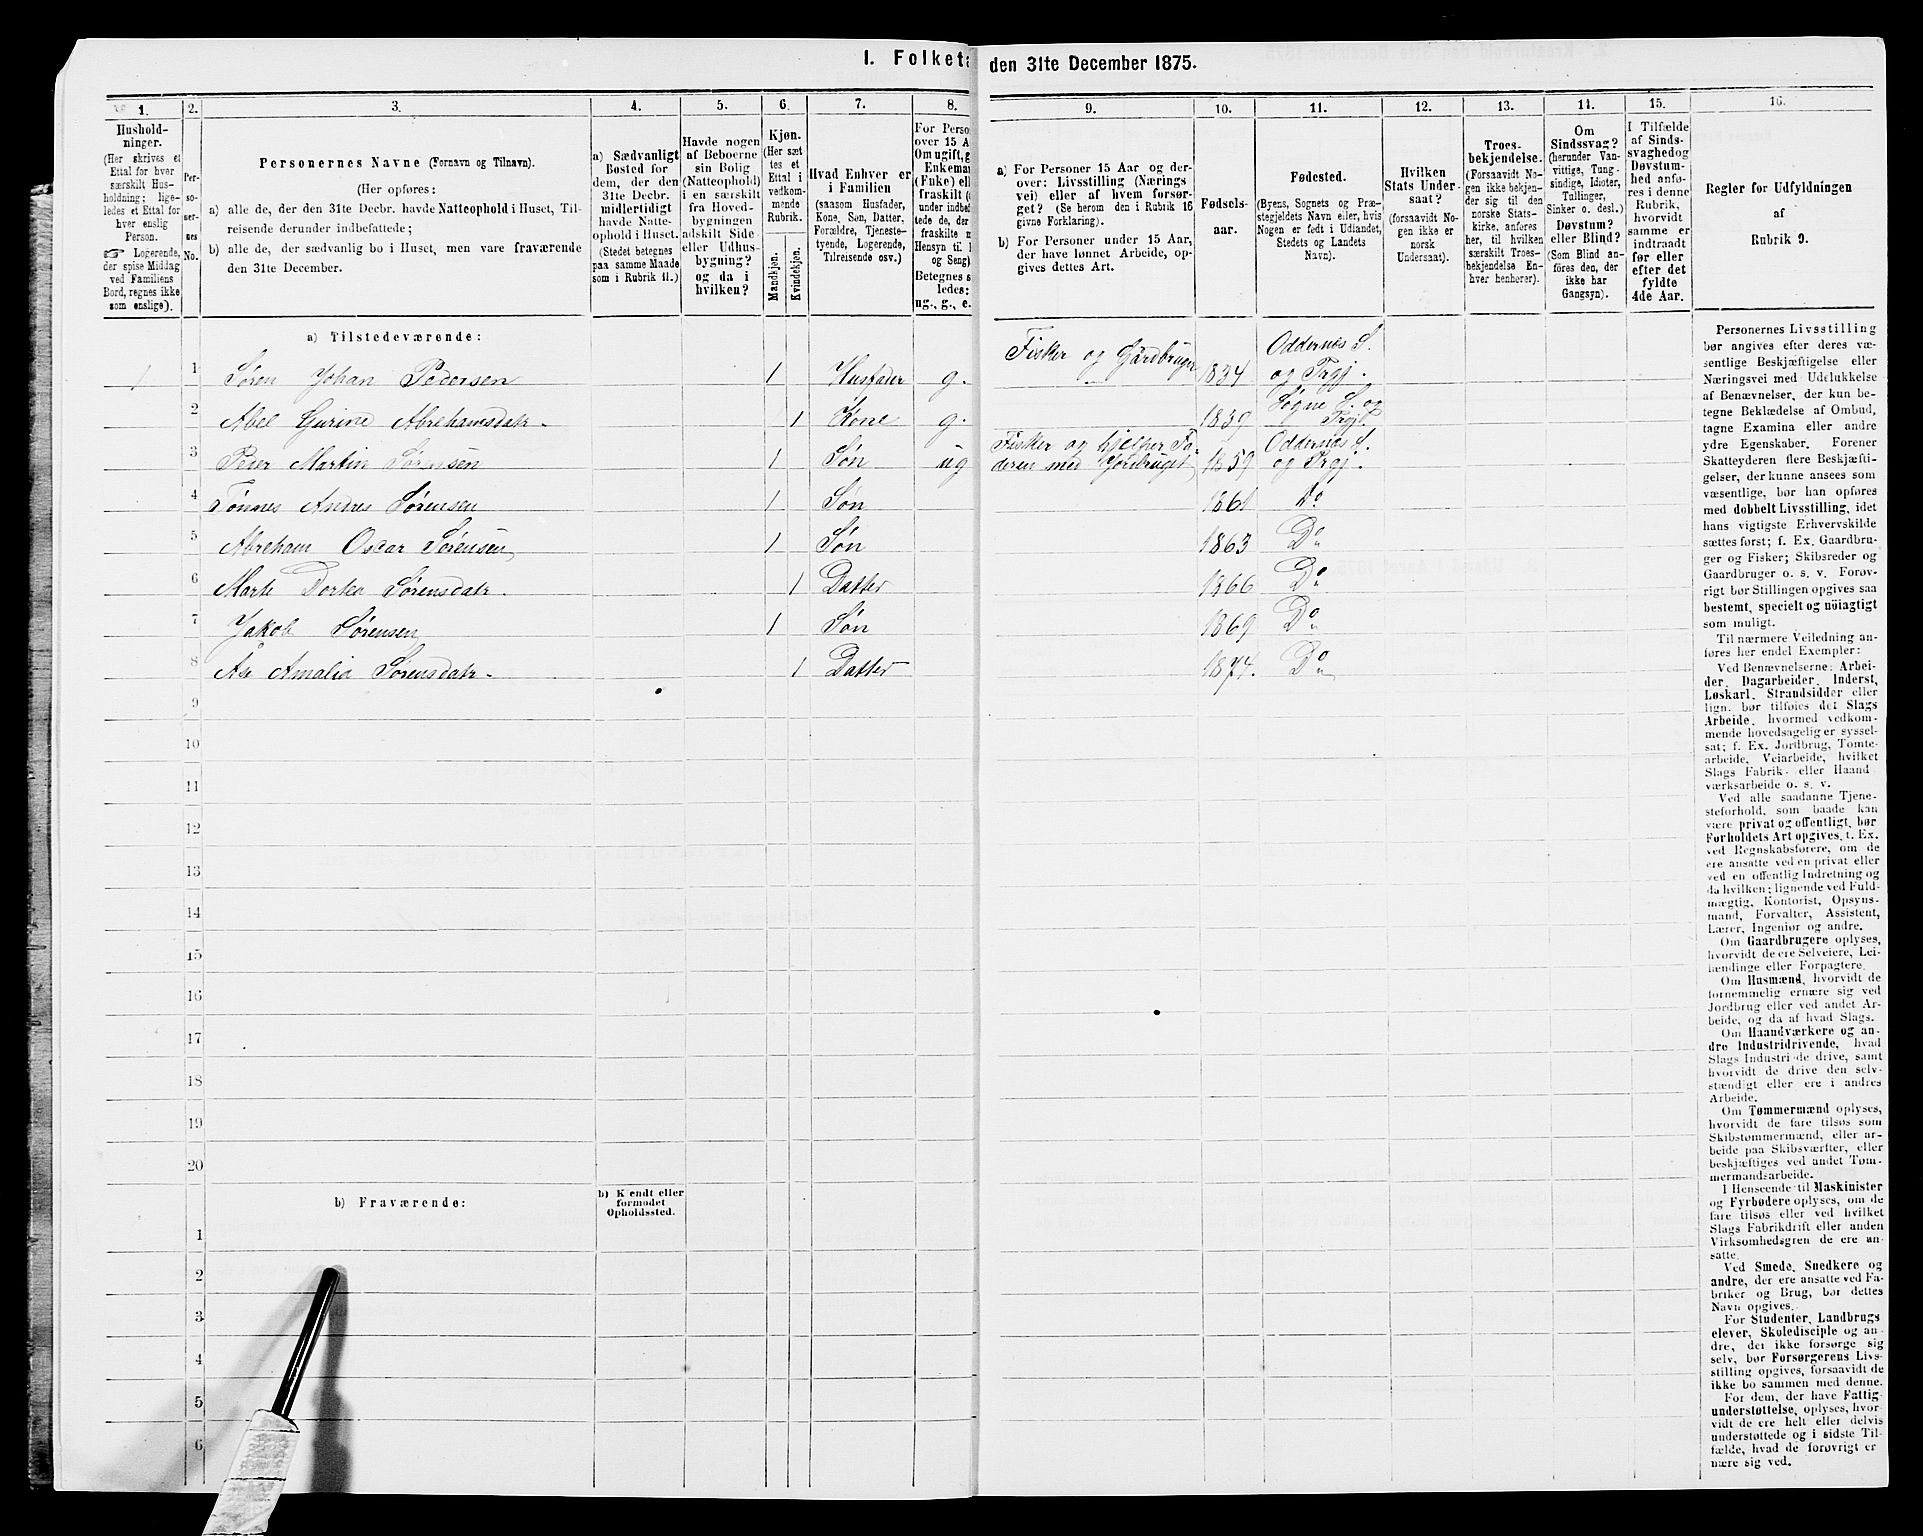 I. Folketæ
den 31te December 1875.
1.
2.
3.
4.
5.
6.
7.
8.
9.
10.
11.
12.
13.
14.
15.
16.
Hushold-
ninger.
(Her skrives et
Ettal for hver
særskilt Hus-
holdning; lige-
ledes et Ettal for
hver enslig
Person.
☞ Logerende,
der spise Middag
ved Familiens
Bord, regnes ikke
som enslige).
Per-
so-
ner-
nes
No.
Personernes Navne (Fornavn og Tilnavn).
(Her opføres:
a) alle de, der den 31te Decbr. havde Natteophold i Huset, Til-
reisende derunder indbefattede;
b) alle de, der sædvanlig bo i Huset, men vare fraværende
den 31te December.
a) Sædvanligt
Bosted for
dem, der den
31te Decbr.
midlertidigt
havde Natte-
ophold i Huset.
(Stedet betegnes
paa samme Maade
som i Rubrik 11.)
Havde nogen
af Beboerne
sin Bolig
(Natteophold)
i en særskilt
fra Hoved-
bygningen
adskilt Side
eller Udhus-
bygning?
og da i
hvilken?
Kjøn.
(Her sæt
tes et
Ettal i
vedkom-
mende
Rubrik.
Mandkjøn.
Kvindekjøn.
Hvad Enhver er
i Familien
(saasom Husfader,
Kone, Søn, Datter,
Forældre, Tjeneste-
tyende, Logerende,
Tilreisende osv.)
For Perso
over 15 A
Om ugift, g
Enkeman
(Enke) ell
fraskilt (
under indbef
tede de, der
fraskilte m
Hensyn til B
og Seng).
Betegnes s
ledes:
ug., g., e.
a) For Personer 15 Aar og der-
over: Livsstilling (Nærings
vei) eller af hvem forsør-
get? (Se herom den i Rubrik 16
givne Forklaring).
b) For Personer under 15 Aar,
der have lønnet Arbeide, op-
gives dettes Art.
Fødsels-
aar.
Fødested.
(Byens, Sognets og Præ-
stegjeldets Navn eller, hvis
Nogen er født i Udlandet,
Stedets og Landets
Navn).
Hvilken
Stats Under-
saat?
(forsaavidt No-
gen ikke er
norsk
Undersaat).
Troes-
bekjendelse.
(Forsaavidt No-
gen ikke bekjen-
der sig til den
norske Stats-
kirke, anføres
her, til hvilken
særskilt Troes-
bekjendelse En-
hver henhører).
Om
Sindssvag?
(herunder Van-
vittige, Tung-
sindige, Idioter,
Tullinger,
Sinker o. desl.)
Døvstum?
eller Blind?
(Som Blind an-
føres den, der
ikke har
Gangsyn).
I Tilfælde
af Sinds-
svaghed og
Døvstum-
hed anfø-
res i denne
Rubrik,
hvorvidt
samme er
indtraadt
før eller
efter det
fyldte
4de Aar.
Regler for Udfyldningen
af
Rubrik 9.
a) Tilstedeværende:
1 1 Søren Johan Pedersen 1 Husfader g. Fisker og Gårdbruger 1834 Oddernes S. og Prgj.
2 Abel Gurine Abrehamsdatr. 1 Kone g. 1839 Søgne S. og Prgj.
3 Peder Martin Sørensen 1 Søn ug Fisker og hjelper Fa-
deren med Jordbruget 1859 Oddernes S. og Prgj.
4 Tønnes Andres Sørensen 1 Søn 1861 Do
5 Abreham Oscar Sørensen 1 Søn 1863 Do
6 Marte Dortea Sørensdatr. 1 Datter 1866 Do
7 Jakob Sørensen 1 Søn 1869 Do
8 Ase Amalia Sørensdatr. 1 Datter 1874. Do
9
10
11
12
13
14
15
16
17
18
19
20
b) Fraværende:
b) Kjendt eller
formodet
Opholdssted.
1
2
3
4
5
6
Personernes Livsstilling
bør angives efter deres væ-
sentlige Beskjæftigelse eller
Næringsvei med Udelukkelse
af Benævnelser, der kun be-
tegne Beklædelse af Ombud,
tagne Examina eller andre
ydre Egenskaber. Forener
Skatteyderen flere Beskjæfti-
gelser, der kunne ansees som
væsentlige, bør han opføres
med dobbelt Livsstilling, idet
hans vigtigste Erhvervskilde
sættes først; f. Ex. Gaardbru-
ger og Fisker; Skibsreder og
Gaardbruger o. s. v. Forøv-
rigt bør Stillingen opgives saa
bestemt, specielt og nöiagtigt
som muligt.
Til nærmere Veiledning an-
føres her endel Exempler:
Ved Benævnelserne: Arbei-
der, Dagarbeider, Inderst,
Løskarl, Strandsidder eller
lign. bør tilføies det Slags
Arbeide, hvormed vedkom-
mende hovedsagelig er syssel-
sat; f. Ex. Jordbrug, Tomte-
arbeide, Veiarbeide, hvilket
Slags Fabrik- eller Haand-
værksarbeide o. s. v.
Ved alle saadanne Tjene-
steforhold, som baade kan
være privat og offentligt, bør
Forholdets Art opgives, f. Ex.
ved Regnskabsførere, om de
ere ansatte ved en privat eller
ved en offentlig Indretning og
da hvilken; lignende ved Fuld-
mægtig, Kontorist, Opsyns-
mand, Forvalter, Assistent,
Lærer, Ingeniør og andre.
Om Gaardbrugere oplyses,
hvorvidt de ere Selveiere, Lei-
lændinge eller Forpagtere.
Om Husmænd, hvorvidt de
fornemmelig ernære sig ved
Jordbrug eller ved andet Ar-
beide, og da af hvad Slags.
Om Haandværkere og an-
dre Industridrivende, hvad
Slags Industri de drive, samt
hvorvidt de drive den selv-
stændigt eller ere i andres
Arbeide.
Om Tømmermænd oplyses,
hvorvidt de fare tilsøs som
Skibstømmermænd, eller ar-
beide paa Skibsværfter, eller
beskjæftiges ved andet Tøm-
mermandsarbeide.
I Henseende til Maskinister
og Fyrbødere oplyses, om de
fare tilsøs eller ved hvilket
Slags Fabrikdrift eller anden
Virksomhedsgren de ere an-
satte.
Ved Smede, Snedkere og
andre, der ere ansatte ved Fa-
briker og Brug, bør dettes
Navn opgives.
For Studenter, Landbrugs
elever, Skoledisciple og an-
dre, der ikke forsørge sig
selv, bør Forsørgerens Livs-
stilling opgives, forsaavidt de
ikke bo sammen med denne.
For dem, der have Fattig-
understøttelse, oplyses, hvor-
vidt de ere helt eller delvis
understøttede og i sidste Til-
fælde, hvad de forøvrigt er
nære sig ved.